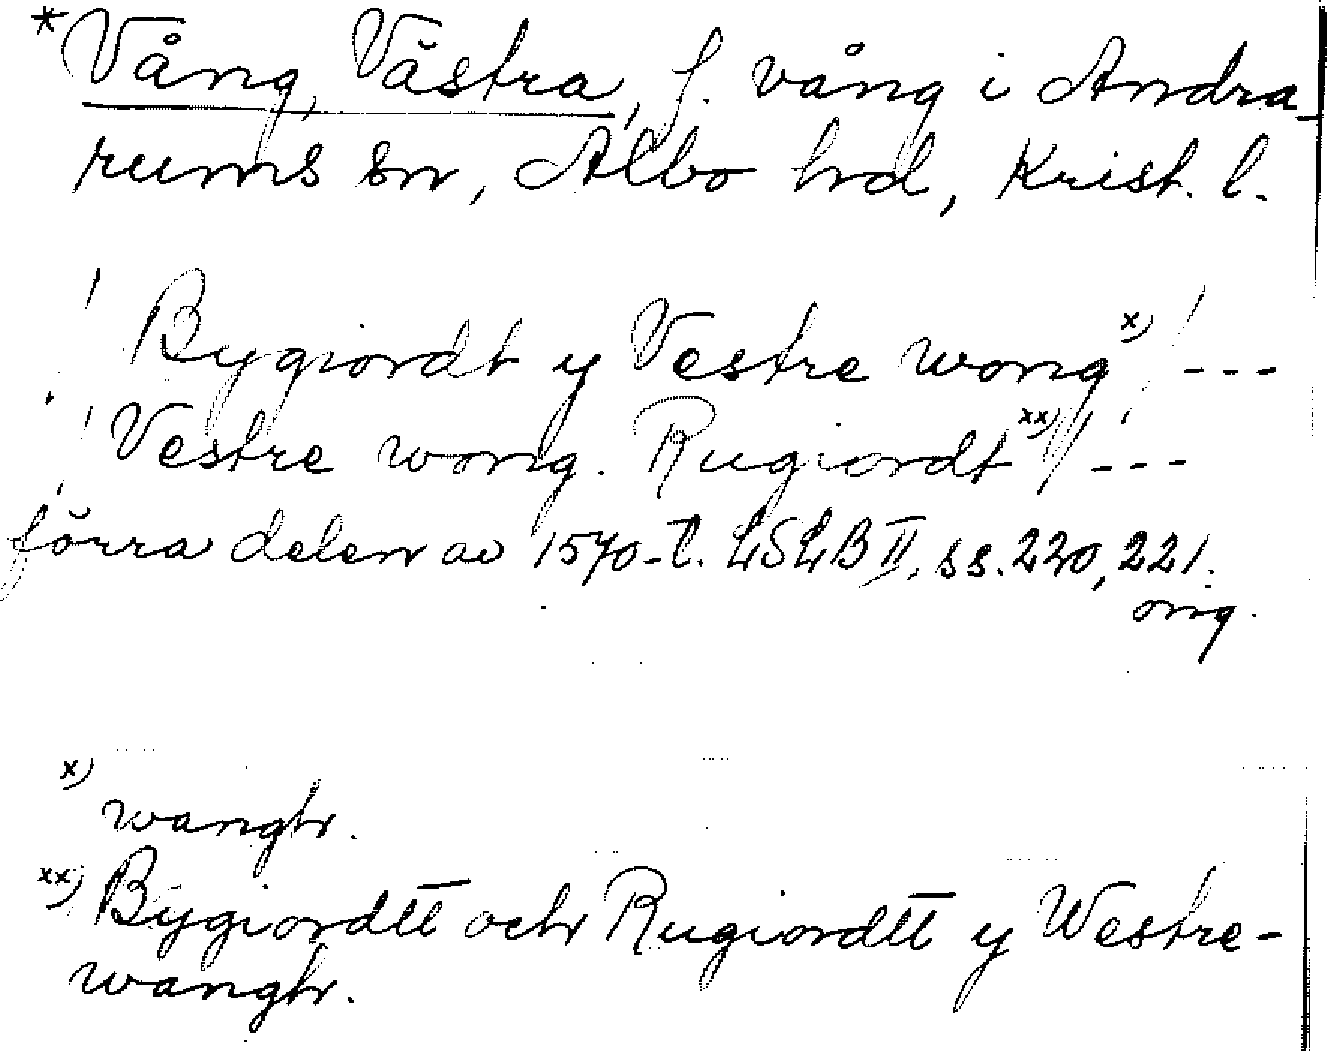 *Vång, Västra, f. vång i Andra-
rums sn, Albo hd, Krist. l.
/ Bygiordt y Vestre wong x) / ---
/ Vestre wong. Rugiordt xx) / ---
förra delen av 1570-t. LSLB II, ss. 220, 221.
orig.
x) wangh.
xx) Bygiordtt och Rugiordtt y Westre-
wangh.